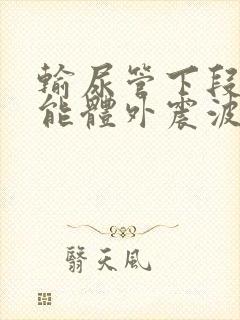 輸尿管下段
能體外震波
翳天風